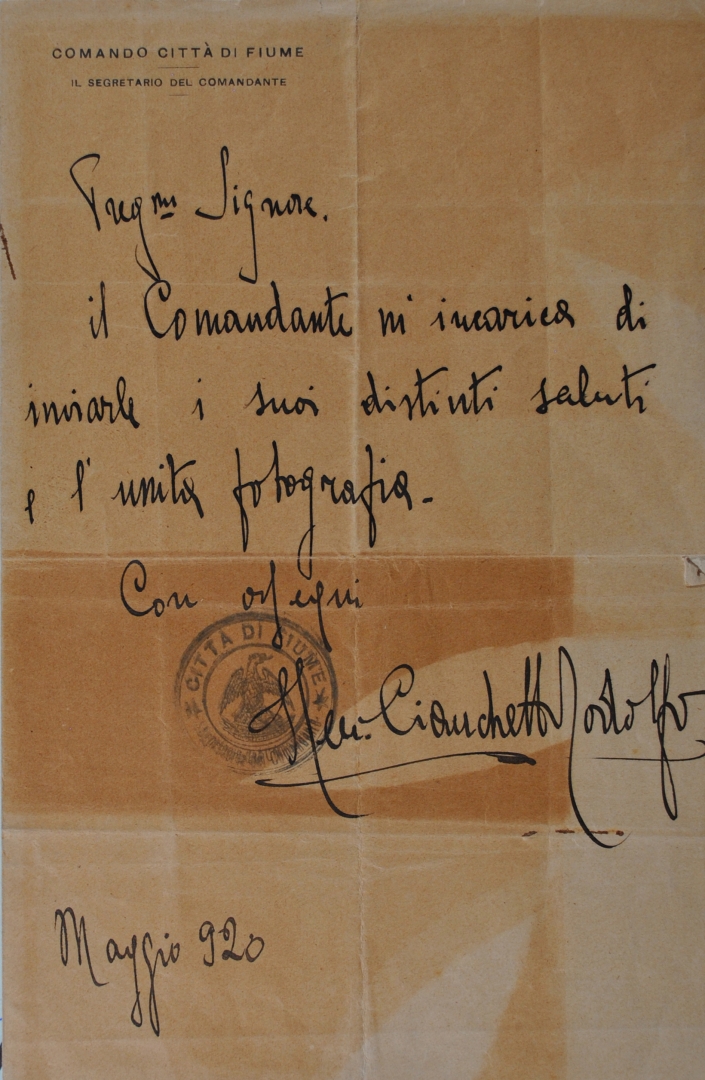 COMANDO CITTÀ DI FIUME
IL SEGRETARIO DEL COMANDANTE
Preg.mo Signore.
il Comandante m'incarica di
inviarle i suoi distinti saluti
e l'unita fotografia.-
Con ossequi
CITTÀ DI FIUME
Cianchetti Rodolfo
Maggio 920